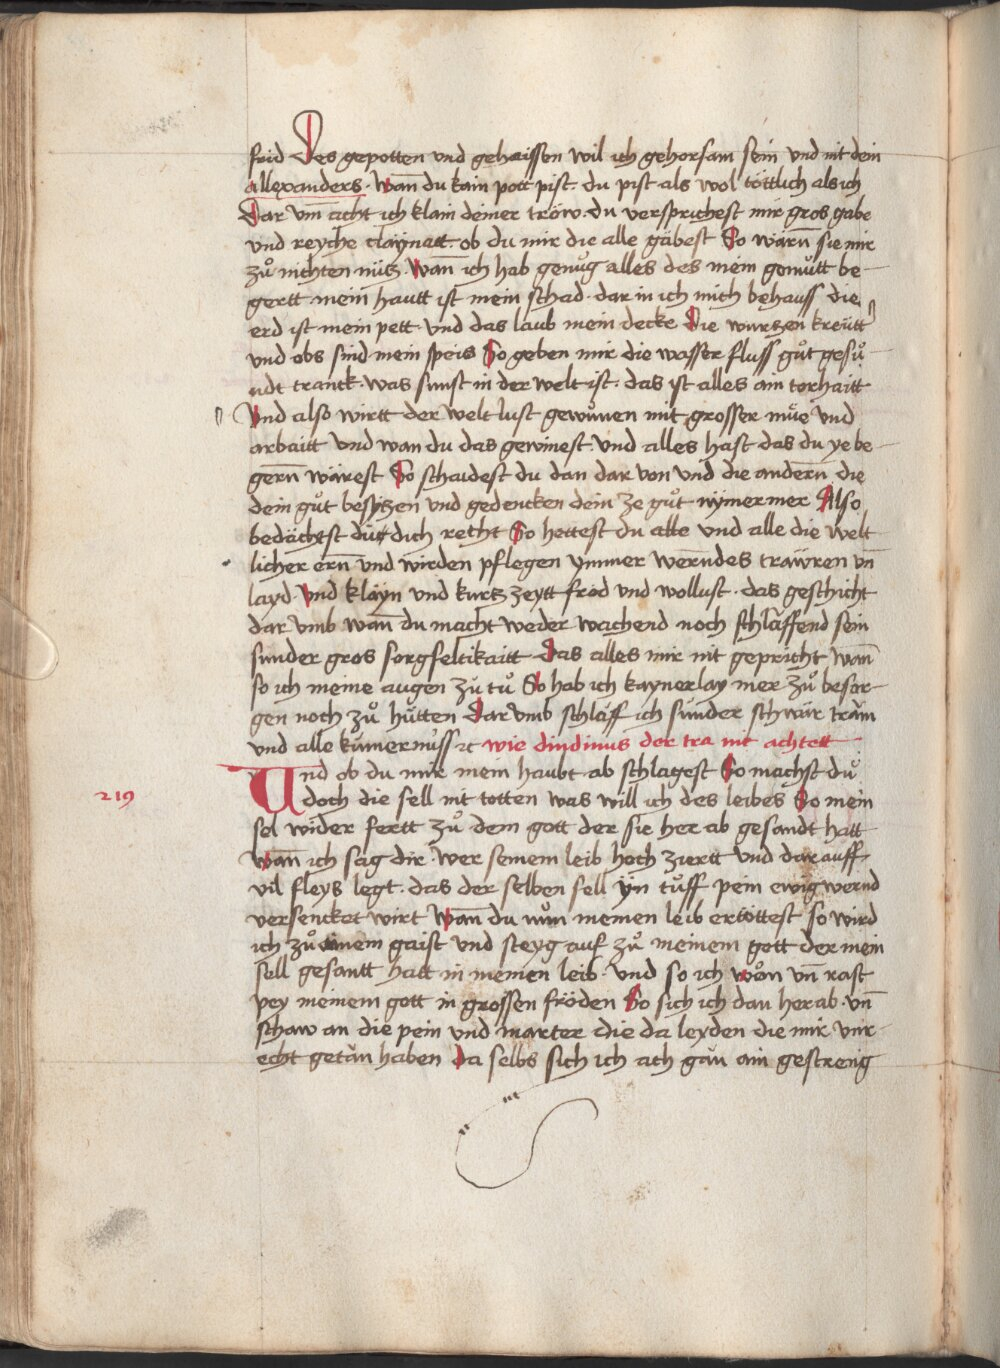 frid Des gepotten vnd gehaissen wil ich gehorsam sein vnd nit dein
allexanders · Wan̄ du kain pott pist · du pist als wol töttlich als ich
Dar vm̄ acht ich klain deiner tröw · du versprichest mir gros gabe
vnd reyche claÿnatt · ob du mir die alle gäbest So wärn̄ sie mir
zů nichten nütz · Wan̄ ich hab genůg alles des mein gemůtt be-
gertt · mein hautt ist mein schad · dar in ich mich behauss die
erd ist mein pett · vnd das laub mein decke Die wurtzen kreütt
vnd obs sind mein speis So geben mir die wasser fluss gůt gesů-
ndt tranck · was sunst in der welt ist · das ist alles ain torhaitt
Vnd also wirtt der welt lust gewůnen mit grosser müe vnd
arbaitt vnd wan du das gewinest · vnd alles hast das du ye be-
gern̄ wärest So schaidest du dan dar von vnd die andern̄ die
dein gůt besytzen vnd gedencken dein ze gůt nÿmer mer Also
bedächtst du dich recht So hettest du alle vnd alle die welt
licher ern̄ vnd wirden pflegen ymmer wern̄des trawren vn̄
layd · Vnd kläyn vnd kurtz zeytt fröd vnd wollust · das geschicht
dar vmb wan̄ du macht weder wachend noch schlaffend sein
sunder gros sorgfeltikaitt Das alles mir nit gepricht wan̄
so ich meine augen zů tů So hab ich kaynerlay mer zů besor-
gen noch zů hütten Dar vmb schlaff ich sunder schwär träm
vnd alle kümernüss ⁊c wie dindimus der tra nit achtett
Und ob du mir mein haubt ab schlagest So machst du
219
doch die sell nit totten was will ich des leibes So mein
sel wider fertt zů dem gott der sie her ab gesandt hatt
Wan̄ ich sag dir · wer seinem leib hoch ziertt vnd dar auff
vil fleys legt · das der selben sell ÿn tůff pein ewig wernd
versencket wirt Wan̄ du nůn meinen leib ertöttest so wird
ich zů ainem gaist vnd steyg auf zů meinem gott der mein
sell gesantt hatt in meinen leib · vnd so ich won vn̄ rast
pey meinem gott in grossen fröden So sich ich dan her ab · vn̄
schaw an die pein vnd marter die da leyden die mir vnr-
echt getän haben Da selbs sich ich ach gän ain gestreng